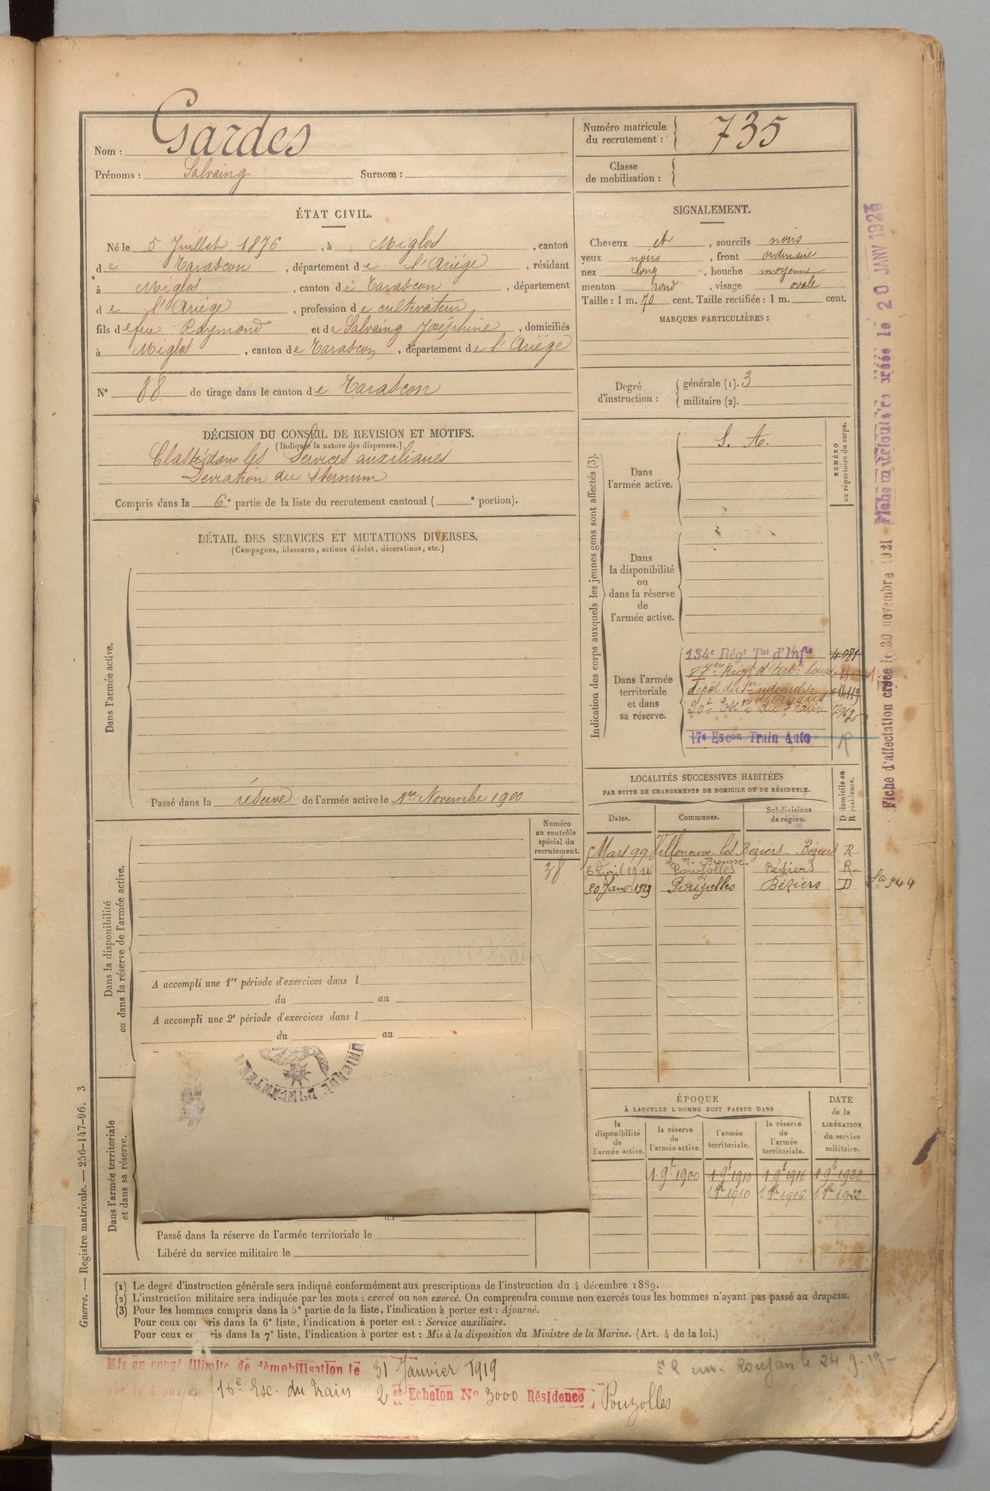 Nom : Gardes
Prénoms : Salvaing Surnom :
Numéro matricule du recrutement : 735
Classe de mobilisation :
ÉTAT CIVIL.
Né le 5 Juillet 1876, à Miglos, canton
de Tarascon, département de l'Ariège, résidant
à Miglos, canton de Tarascon, département
de l'Ariège, profession de cultivateur
fils de feu Raymond et de Salvaing Joséphine, domiciliés
à Miglos, canton de Tarascon, département de l'Ariège
N° 88 de tirage dans le canton de Tarascon
DÉCISION DU CONSEIL DE REVISION ET MOTIFS.
(Indiquer la nature des dispenses.)
Classé dans les Services auxiliaires
Déviation du Sternum
Compris dans la 6e partie de la liste du recrutement cantonal ( e portion).
SIGNALEMENT.
Cheveux et, sourcils noirs
yeux noirs, front ordinaire
nez long, bouche moyenne
menton rond, visage ovale
Taille : 1 m. 70 cent. Taille rectifiée : 1 m. cent.
MARQUES PARTICULIÈRES :
Degré d'instruction :
générale (1). 3
militaire (2).
DÉTAIL DES SERVICES ET MUTATIONS DIVERSES.
(Campagnes, blessures, actions d'éclat, décorations, etc.)
Dans l'armée active.
Passé dans la réserve de l'armée active le 1er Novembre 1900
Indication des corps auxquels les jeunes gens sont affectés (3).
Dans l'armée active.
S. A.
NUMÉRO au répertoire du corps.
Dans la disponibilité ou dans la réserve de l'armée active.
Dans l'armée territoriale et dans sa réserve.
134e Régt Tal d'Infie
17e Escon Train Auto R
LOCALITÉS SUCCESSIVES HABITÉES
PAR SUITE DE CHANGEMENTS DE DOMICILE OU DE RÉSIDENCE.
Dates. Communes. Subdivisions de région. Domicile ou Résidence.
5 Mars 99 Villeneuve les Béziers Béziers R
6 Avril 1914 Pouzolles Béziers R
30 Janv. 1923 Pouzolles Béziers D
Numéro au contrôle spécial du recrutement.
38
Dans la disponibilité ou dans la réserve de l'armée active.
A accompli une 1re période d'exercices dans l
du au
A accompli une 2e période d'exercices dans l
du au
Dans l'armée territoriale et dans sa réserve.
Passé dans la réserve de l'armée territoriale le
Libéré du service militaire le
ÉPOQUE
À LAQUELLE L'HOMME DOIT PASSER DANS
la disponibilité de l'armée active.
la réserve de l'armée active.
l'armée territoriale.
la réserve de l'armée territoriale.
DATE de la LIBÉRATION du service militaire.
1 9bre 1900 1 9bre 1910 1 9bre 1916 1 9bre 1922
(1) Le degré d'instruction générale sera indiqué conformément aux prescriptions de l'instruction du 4 décembre 1889.
(2) L'instruction militaire sera indiquée par les mots : exercé ou non exercé. On comprendra comme non exercés tous les hommes n'ayant pas passé au drapeau.
(3) Pour les hommes compris dans la 5e partie de la liste, l'indication à porter est : Ajourné.
Pour ceux compris dans la 6e liste, l'indication à porter est : Service auxiliaire.
Pour ceux compris dans la 7e liste, l'indication à porter est : Mis à la disposition du Ministre de la Marine. (Art. 4 de la loi.)
Guerre. — Registre matricule. — 256-147-96. 3
Mis en congé illimité de démobilisation le 31 Janvier 1919
par le dépôt du 16e Esc. du Train 2e Echelon No 3000 Résidence Pouzolles
Fiche d'affectation créée le 30 novembre 1921
20 JANV 1923